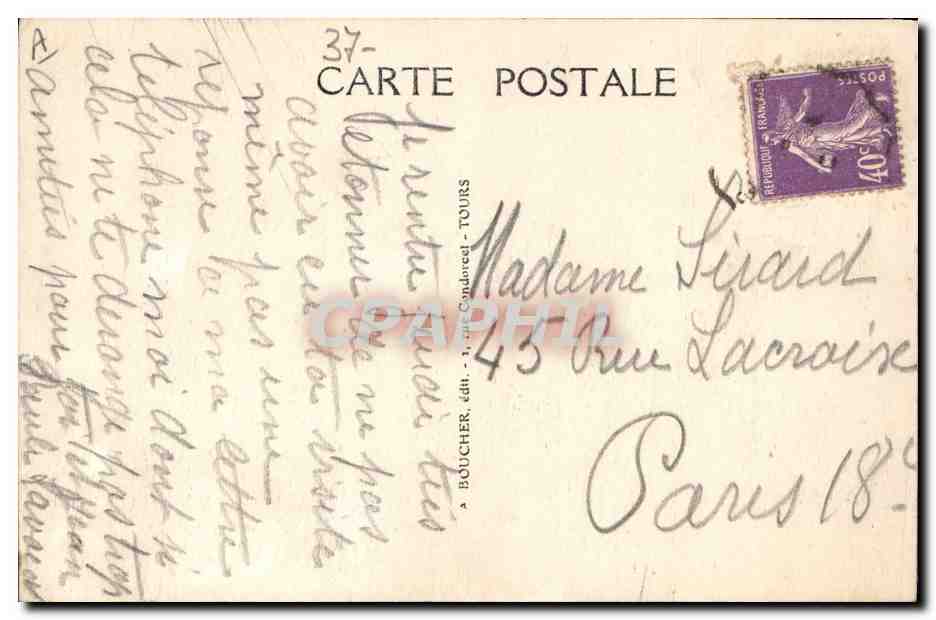 37-
CARTE POSTALE
POSTES
REPUBLIQUE FRANÇAISE
40c
Je rentre jeudi très
étonnée de ne pas
avoir eu ta visite
même pas une
réponse a ma lettre
téléphone moi dont si
cela ne te demande pas trop
amitiés pour toi et
A BOUCHER, édit. - 1, rue Condorcet - TOURS
CPAPHIL
Madame Sérard
45 Rue Lacroix
Paris 18e